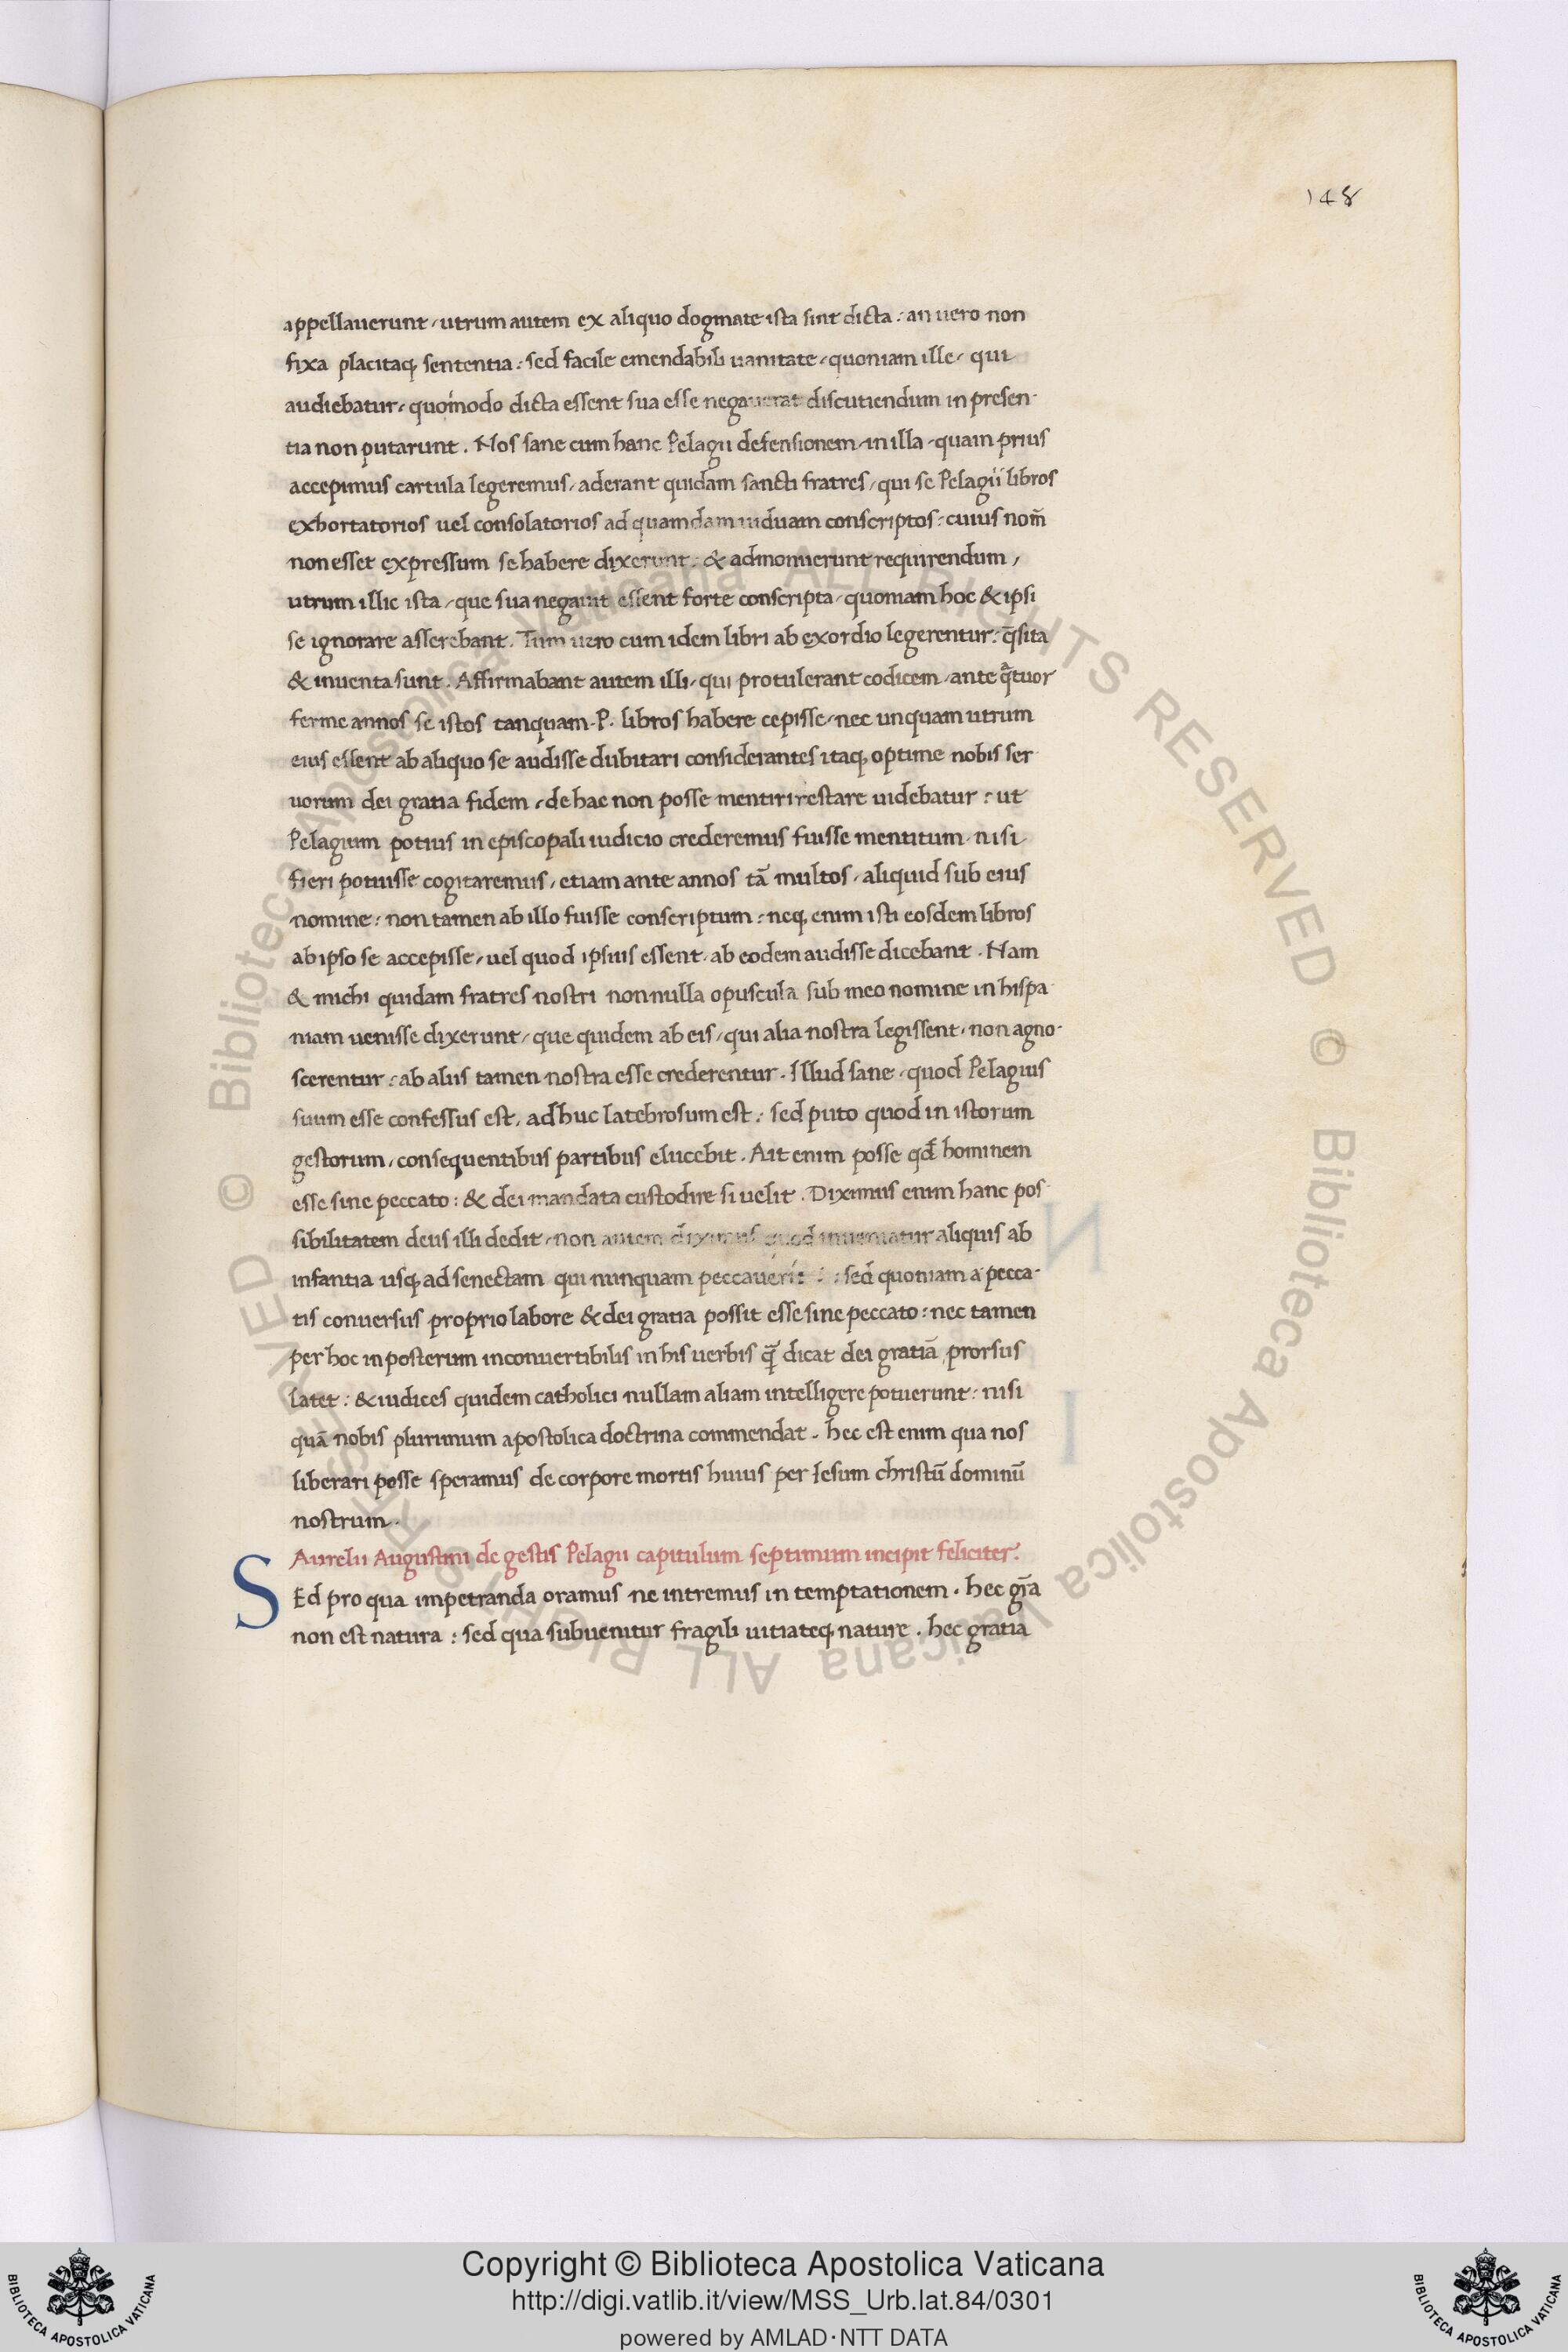 148
appellauerunt, utrum autem ex aliquo dogmate ista sint dicta: an uero non
fixa placitaq; sententia: sed facile emendabili uanitate, quoniam ille, qui
audiebatur, quomodo dicta essent sua esse negauerat discutiendum in presen-
tia non putarunt. Nos sane cum hanc Pelagii defensionem, in illa, quam prius
accepimus cartula legeremus, aderant quidam sancti fratres, qui se Pelagii libros
exhortatorios uel consolatorios ad quamdam uiduam conscriptos: cuius nom̄
non esset expressum se habere dixerunt: & admonuerunt requirendum,
utrum illic ista, que sua negauit essent forte conscripta, quoniam hoc & ipsi
se ignorare asserebant. Tum uero cum idem libri ab exordio legerentur: q̄sita
& inuenta sunt. Affirmabant autem illi, qui protulerant codicem, ante q̄tuor
ferme annos se istos tanquam .P. libros habere cepisse, nec unquam utrum
eius essent ab aliquo se audisse dubitari considerantes itaq; optime nobis ser
uorum dei gratia fidem, de hac non posse mentiri restare uidebatur: ut
Pelagium potius in episcopali iudicio crederemus fuisse mentitum, nisi
fieri potuisse cogitaremus, etiam ante annos tā multos, aliquid sub eius
nomine: non tamen ab illo fuisse conscriptum: neq; enim isti eosdem libros
ab ipso se accepisse, uel quod ipsius essent, ab eodem audisse dicebant. Nam
& michi quidam fratres nostri nonnulla opuscula sub meo nomine in hispa
niam uenisse dixerunt, que quidem ab eis, qui alia nostra legissent, non agno-
scerentur: ab aliis tamen nostra esse crederentur. Illud sane, quod Pelagius
suum esse confessus est, adhuc latebrosum est: sed puto quod in istorum
gestorum, consequentibus partibus elucebit. Ait enim posse qd̄ hominem
esse sine peccato: & dei mandata custodire si uelit. Diximus enim hanc pos
sibilitatem deus illi dedit, non autem diximus quod inueniatur aliquis ab
infantia usq; ad senectam qui nunquam peccauerit: sed quoniam a pecca-
tis conuersus proprio labore & dei gratia possit esse sine peccato: nec tamen
per hoc in posterum inconuertibilis in his uerbis q̄ dicat dei gratiā, prorsus
latet: & iudices quidem catholici nullam aliam intelligere potuerunt: nisi
quā nobis plurimum apostolica doctrina commendat. hec est enim qua nos
liberari posse speramus de corpore mortis huius per Iesum christū dominū
nostrum.
Aurelii Augustini de gestis Pelagii capitulum septimum incipit feliciter.
SEd pro qua impetranda oramus ne intremus in temptationem. hec gr̄a
non est natura: sed qua subuenitur fragili uitiateq; nature. hec gratia
© Biblioteca Apostolica Vaticana ALL RIGHTS RESERVED © Biblioteca Apostolica Vaticana ALL RIGHTS RESERVED
Copyright © Biblioteca Apostolica Vaticana
http://digi.vatlib.it/view/MSS_Urb.lat.84/0301
powered by AMLAD·NTT DATA
BIBLIOTECA APOSTOLICA VATICANA
BIBLIOTECA APOSTOLICA VATICANA